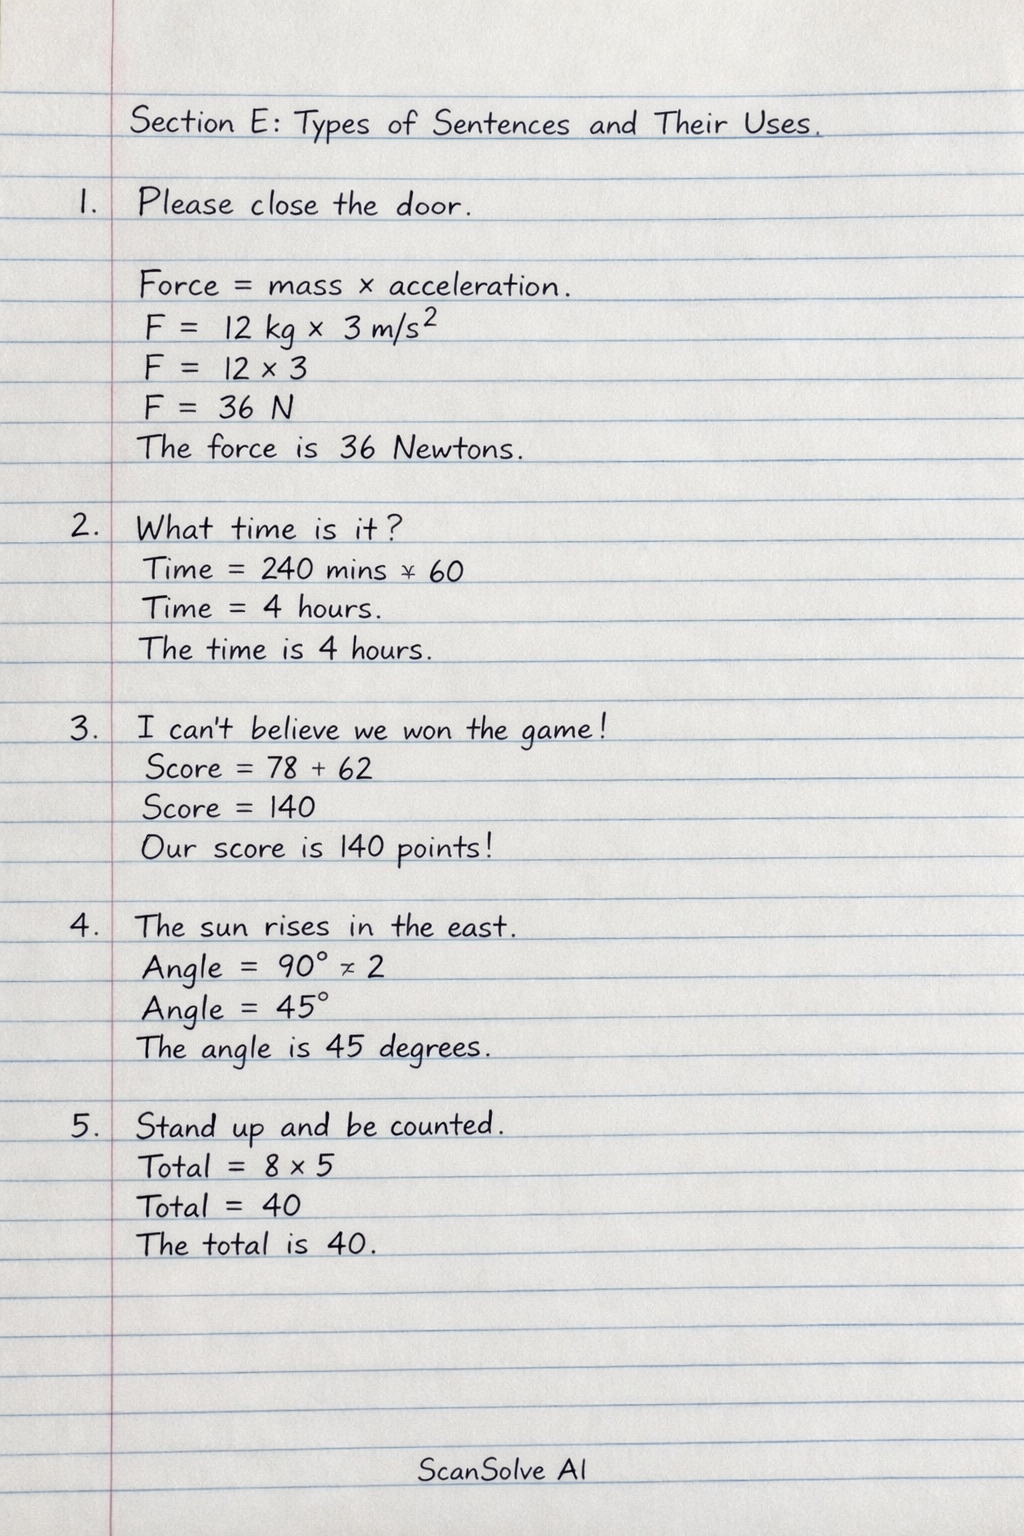 Section E: Types of Sentences and Their Uses.
1. Please close the door.
Force = mass × acceleration.
F = 12 kg × 3 m/s²
F = 12 × 3
F = 36 N
The force is 36 Newtons.
2. What time is it?
Time = 240 mins 60
Time = 4 hours.
The time is 4 hours.
3. I can't believe we won the game!
Score = 78 + 62
Score = 140
Our score is 140 points!
4. The sun rises in the east.
Angle = 90° 2
Angle = 45°
The angle is 45 degrees.
5. Stand up and be counted.
Total = 8 × 5
Total = 40
The total is 40.
ScanSolve AI